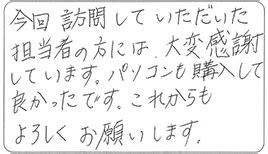 今回訪問していただいた
担当者の方には、大変感謝
しています。パソコンも購入して
良かったです。これからも
よろしくお願いします。